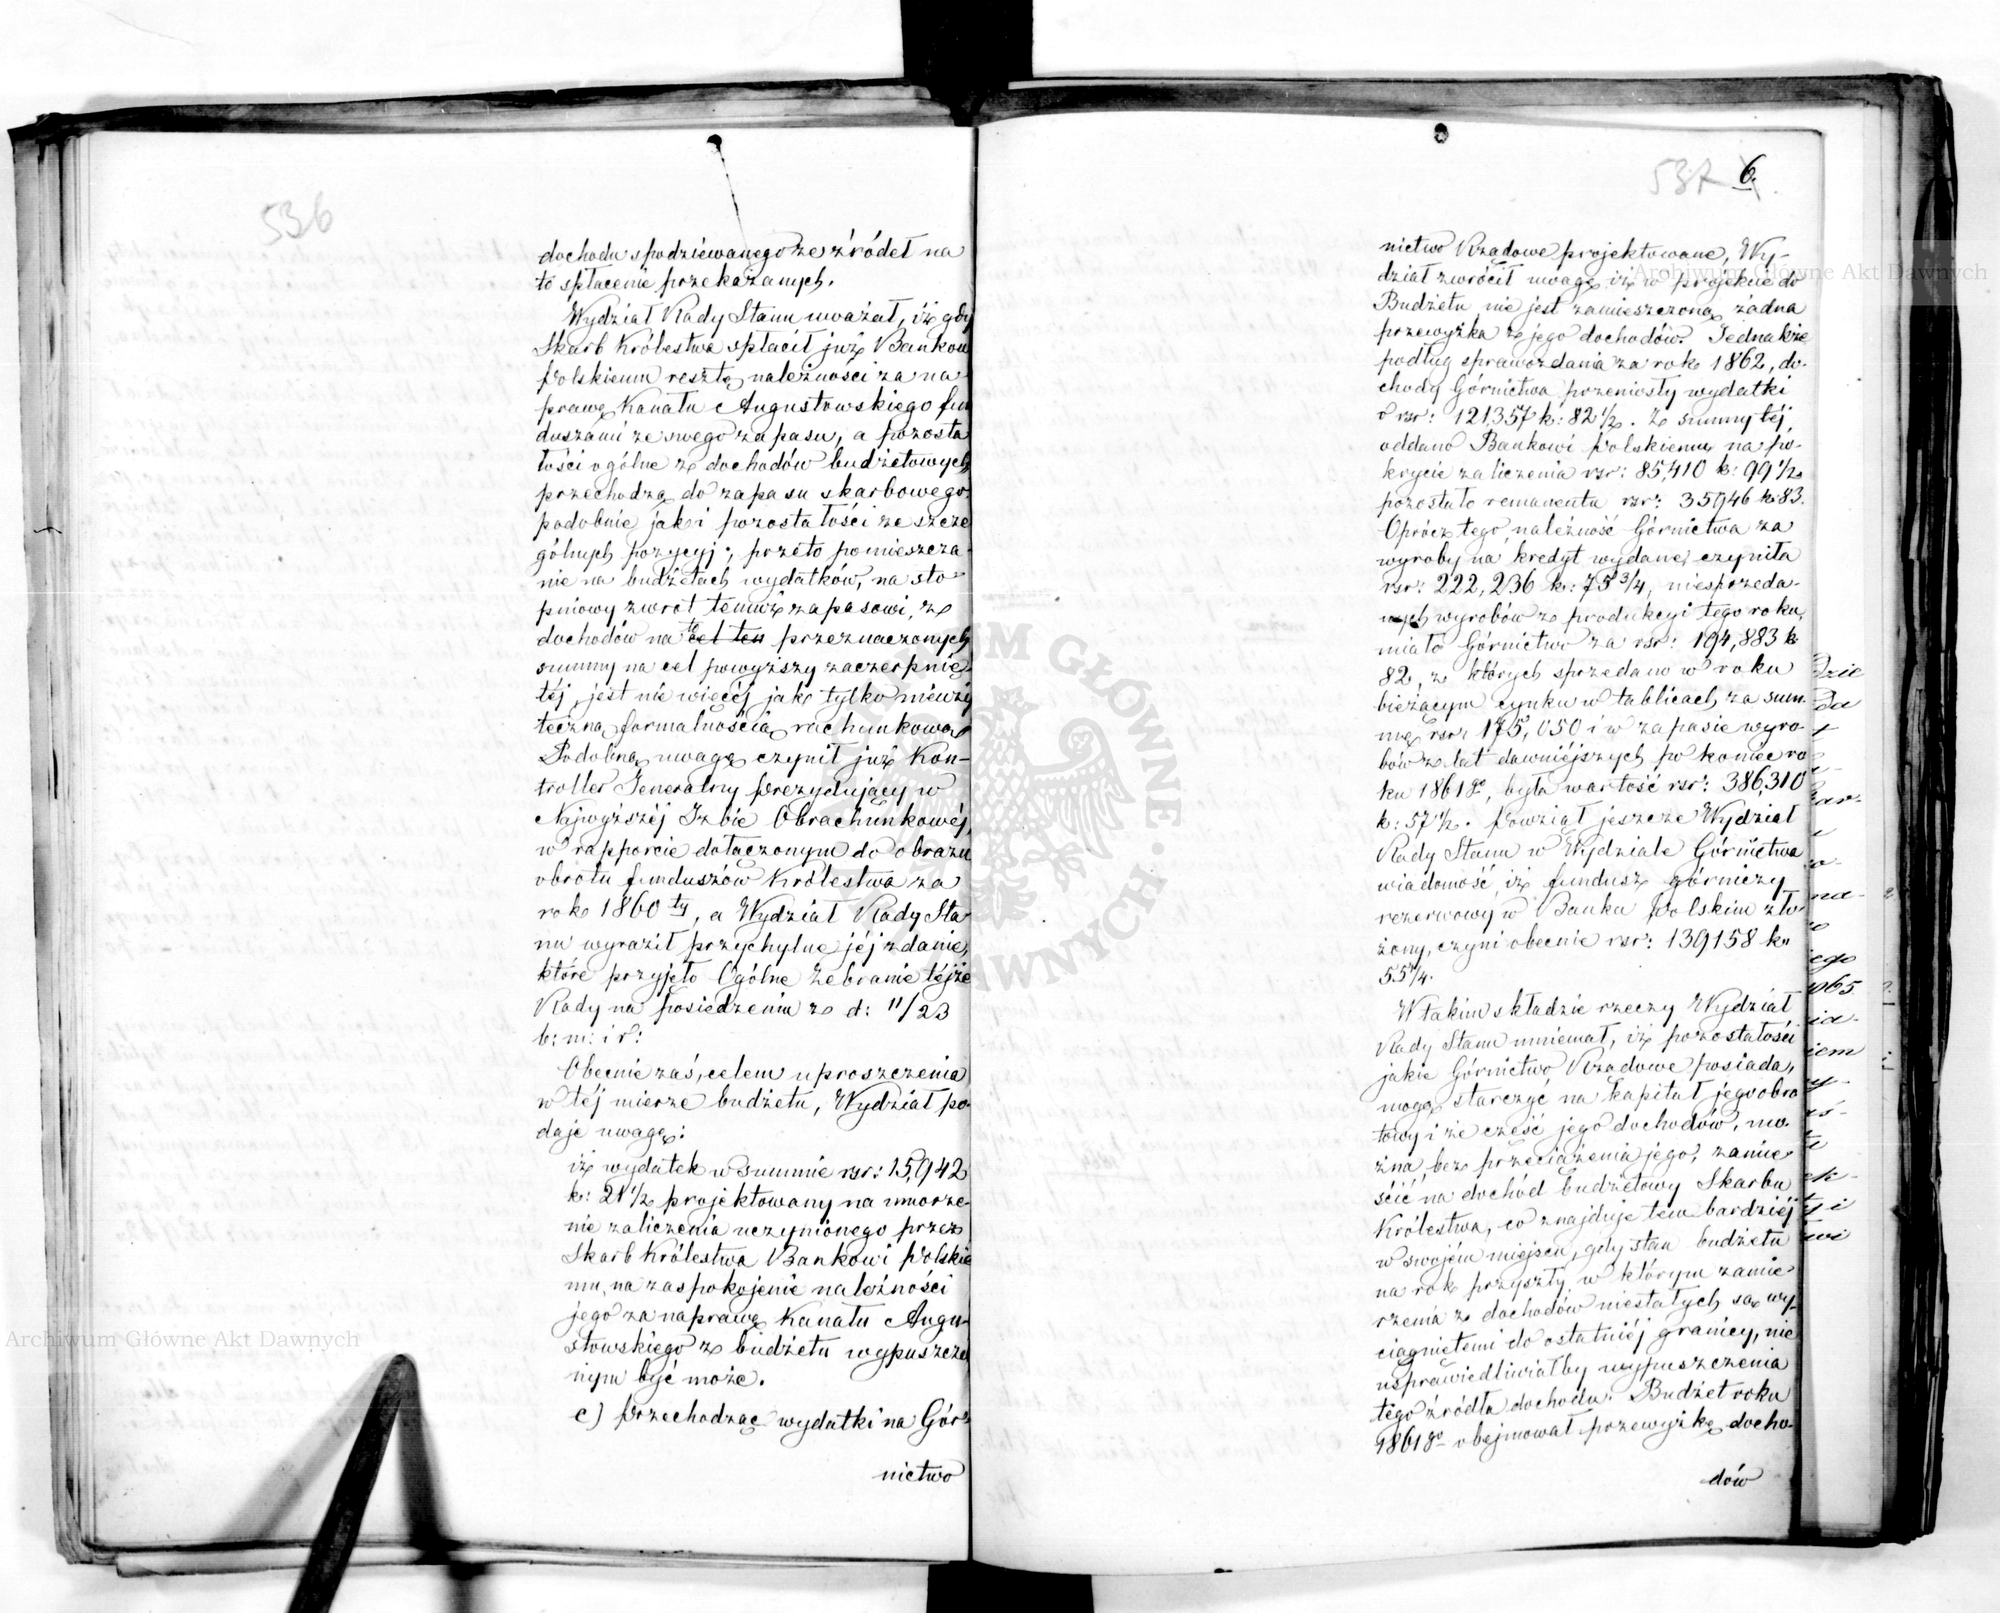 536
dochodu spodziewanego ze źródeł na
to spłacenie przekazanych.
Wydział Rady Stanu uważał, iż gdy
Skarb Królestwa spłacił już Bankow
Polskiemu resztę należności za na-
prawę Kanału Augustowskiego fun
duszami ze swego zapasu, a pozosta
łości ogólne z dochodów budżetowych
przechodzą do zapasu skarbowego,
podobnie jak i pozostałości ze szcze
gólnych pozycyj; przeto pomieszcza-
nie na budżetach wydatków, na sto-
pniowy zwrot temuż zapasowi, z
dochodów na to cel ten przeznaczonych
summy na cel powyższy zaczerpnię-
téj, jest nie więcéj jak tylko nieuży
teczną formalnością rachunkową
Podobną uwagę czynił już Kon-
troller Jeneralny Prezydujący w
Najwyższéj Izbie Obrachunkowéj,
w rapporcie dołączonym do obrazu
obrotu funduszów Królestwa za
rok 1860 ty, a Wydział Rady Sta
nu wyraził przychylne jéj zdanie,
które przyjęło Ogólne Zebranie téjże
Rady na posiedzeniu z d: 11/23
b: m: i r:
Obecnie zaś, celem uproszczenia
w téj mierze budżetu, Wydział po-
daje uwagę:
iż wydatek w summie rsr: 15,942
k: 21 1/2 projektowany na umorze-
nie zaliczenia uczynionego przez
Skarb Królestwa Bankowi Polskie
mu, na zaspokojenie należności
jego za naprawę Kanału Augu-
stowskiego z budżetu wypuszczo
nym być może.
c) Przechodząc wydatki na Gór-
nictwo
537 6.
nictwo Rządowe projektowane, Wy-
dział zwrócił uwagę iż w projekcie do
Budżetu nie jest zamieszczoną żadna
przewyżka z jego dochodów. Jednakże
podług sprawozdania za rok 1862, do-
chody Górnictwa przeniosły wydatki
o rsr: 121,357 k: 82 1/2. Z summy téj,
oddano Bankowi Polskiemu na po-
krycie zaliczenia rsr: 85,410 k: 99 1/2
pozostało remanentu rsr: 35946 k: 83.
Oprócz tego, należność Górnictwa za
wyroby na kredyt wydane, czyniła
rsr: 222,236 k: 75 3/4, niesprzeda-
nych wyrobów z produkcyi tego roku,
miało Górnictwo za rsr: 194,883 k
82, z których sprzedano w roku
bieżącym cynku w tablicach za sum-
mę rsr: 175,050 i w zapasie wyro-
bów z lat dawniéjszych po koniec ro
ku 1861 go, była wartość rsr: 386,310
k: 57 1/2. Powziął jeszcze Wydział
Rady Stanu w Wydziale Górnictwa
wiadomość, iż fundusz górniczy
rezerwowy w Banku Polskim zło-
żony, czyni obecnie rsr: 139158 k
55 3/4.
W takim składzie rzeczy Wydział
Rady Stanu mniemał, iż pozostałości
jakie Górnictwo Rządowe posiada,
mogą starczyć na kapitał jego obro
towy i że cześć jego dochodów, mo-
żna, bez przeciążenia jego, zamie-
ścić na dochód budżetowy Skarbu
Królestwa, co znajduje tem bardziéj
w swojém miejscu, gdy stan budżetu
na rok przyszły, w którym zamie
rzenia z dochodów niestałych są wy-
ciągniętemi do ostatniéj granicy, nie
usprawiedliwiałby wypuszczenia
tego źródła dochodu. Budżet roku
1861 go obejmował przewyżkę docho-
dów